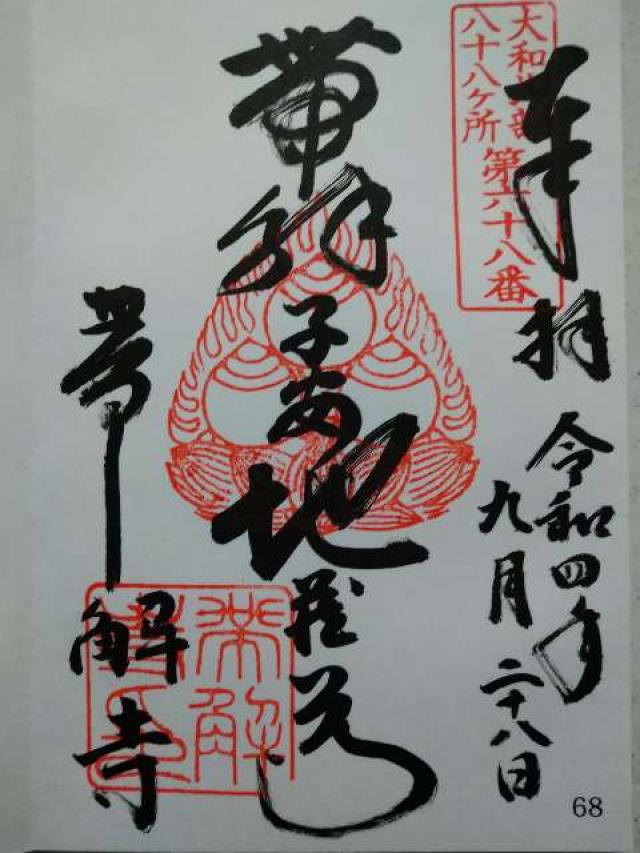 奉拝
令和四年
九月二十八日
大和北部
八十八ヶ所 第六十八番
帶解子安地蔵尊
帯解寺
68